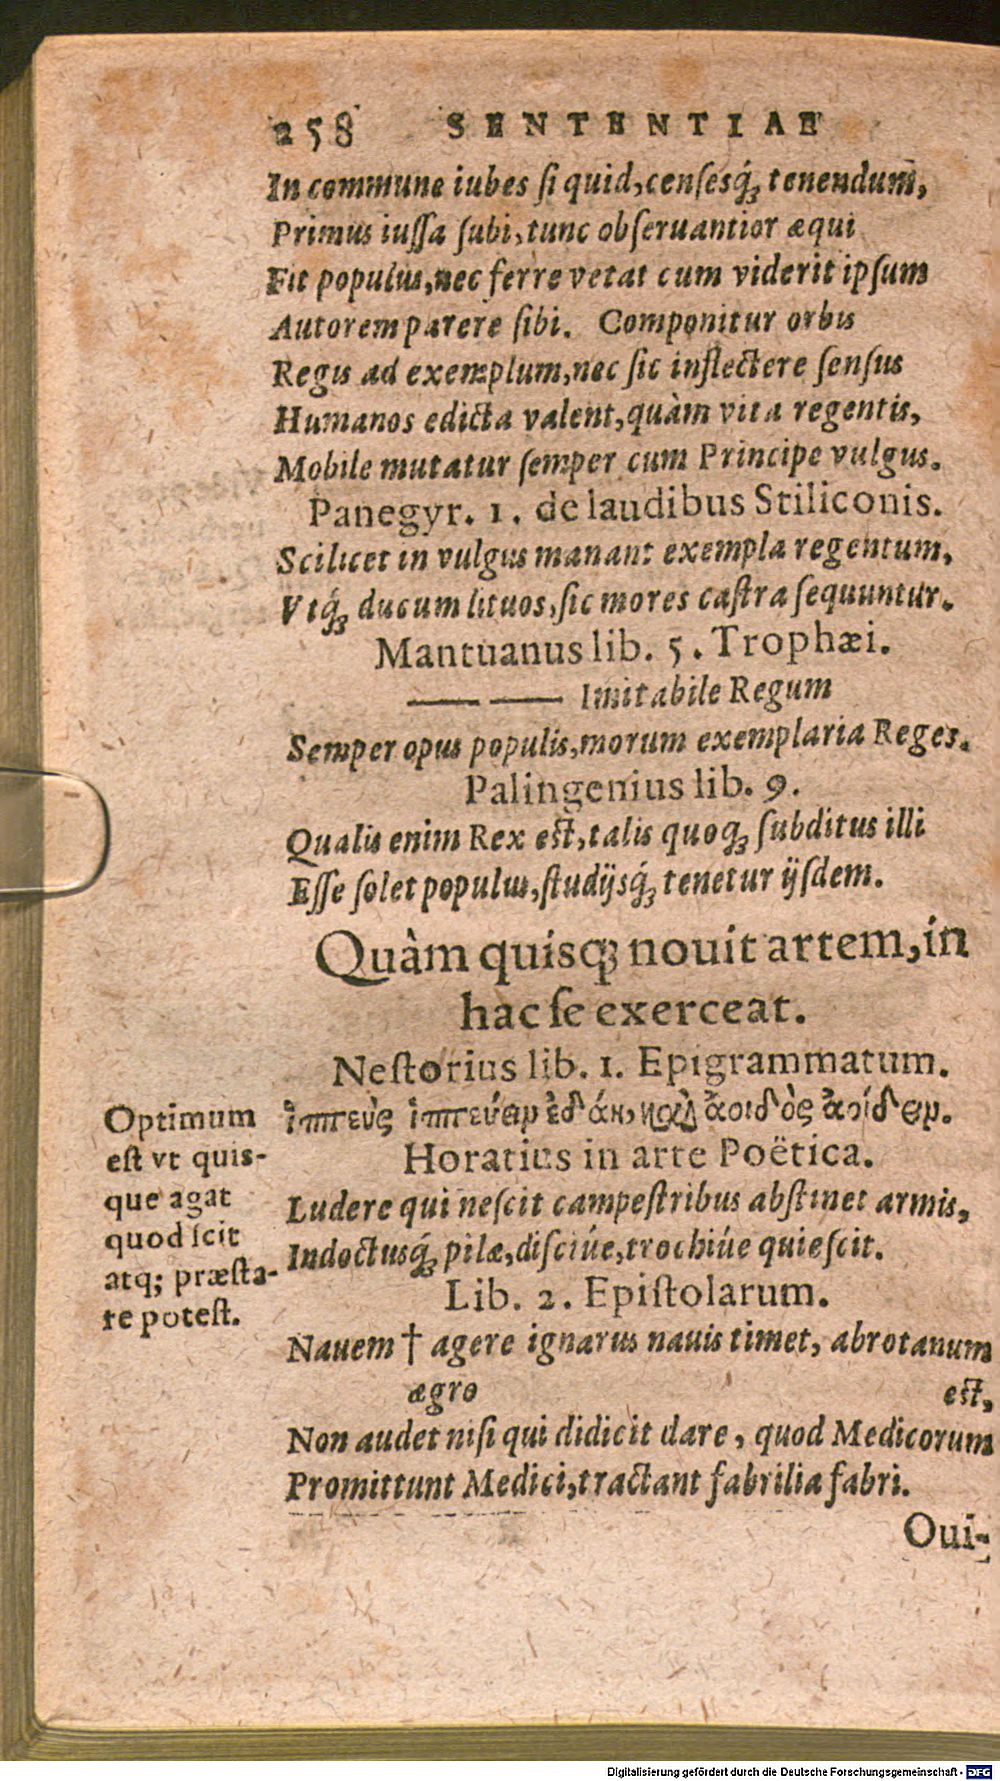 258 SENTENTIAE
In commune iubes ſi quid, cenſesq́ꝫ tenendum,
Primus iuſſa ſubi, tunc obſeruantior æqui
Fit populus, nec ferre vetat cum viderit ipſum
Autorem parere ſibi. Componitur orbis
Regis ad exemplum, nec ſic inflectere ſenſus
Humanos edicta valent, quàm vita regentis,
Mobile mutatur ſemper cum Principe vulgus.
Panegyr. 1. de laudibus Stiliconis.
Scilicet in vulgus manant exempla regentum,
Vtq́ꝫ ducum lituos, ſic mores caſtra ſequuntur.
Mantuanus lib. 5. Trophæi.
—— —— Imitabile Regum
Semper opus populis, morum exemplaria Reges.
Palingenius lib. 9.
Qualis enim Rex eſt, talis quoqꝫ ſubditus illi
Eſſe ſolet populus, ſtudijsq́ꝫ tenetur ijſdem.
Quàm quisqꝫ nouit artem, in
hac ſe exerceat.
Neſtorius lib. 1. Epigrammatum.
ἱππεὺς ἱππεύειν ἐδάη, καὶ ἀοιδὸς ἀείδειν.
Horatius in arte Poëtica.
Ludere qui neſcit campeſtribus abſtinet armis,
Indoctusq́ꝫ pilæ, diſciúe, trochiúe quieſcit.
Lib. 2. Epiſtolarum.
Nauem † agere ignarus nauis timet, abrotanum
ægro eſt,
Non audet niſi qui didicit dare, quod Medicorum
Promittunt Medici, tractant fabrilia fabri.
Oui-
Optimum
eſt vt quis-
que agat
quod ſcit
atq; præſta-
re poteſt.
Digitalisierung gefördert durch die Deutsche Forschungsgemeinschaft - DFG